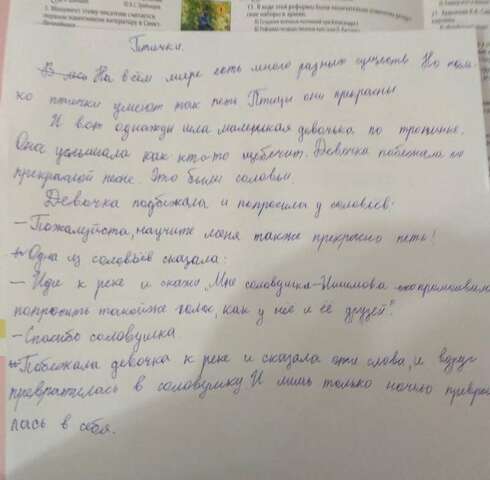 1. Монумент этому писателю считается
первым памятником литератору в Санкт-
Птички.
На всём мире есть много разных существ Но толь-
ко птички умеют так петь Птицы они прекрасны
И вот однажды шла маленькая девочька по тропинке.
Она услышала как кто-то щебечит. Девочка побежала по
прекрасной песне. Это были соловьи.
Девочка подбежала и попросила у соловьёв:
– Пожалуйста, научите меня также прекрасно петь!
Одна из соловьёв сказала:
– Иди к реке и скажи, Мне соловушка
попросить такойже голос, как у неё и её друзей".
– Спасибо соловушка.
Побежала девочка к реке и сказала эти слова, и вдруг
превратилась в соловушку И лишь только ночью превра
лась в себя.